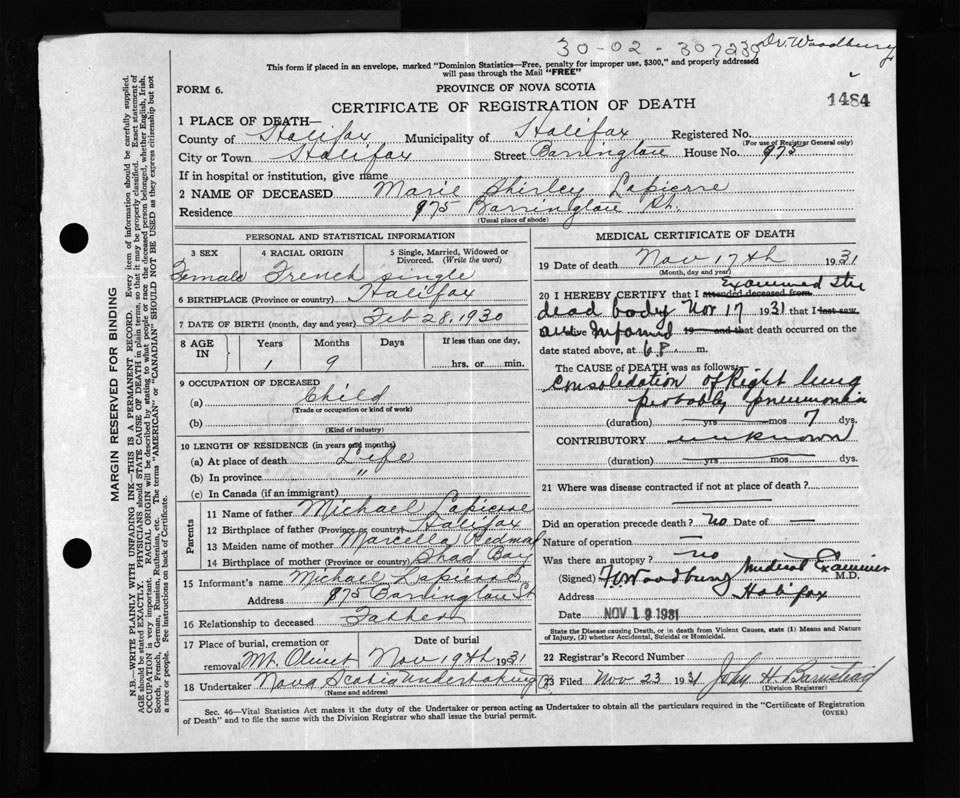 30-02-307239 Dr. Woodbury
This form if placed in an envelope, marked "Dominion Statistics—Free, penalty for improper use, $300," and properly addressed
will pass through the Mail "FREE"
FORM 6. PROVINCE OF NOVA SCOTIA
CERTIFICATE OF REGISTRATION OF DEATH 1484
1 PLACE OF DEATH—
County of Halifax Municipality of Halifax Registered No.
(For use of Registrar General only)
City or Town Halifax Street Barrington House No. 975
If in hospital or institution, give name
2 NAME OF DECEASED Marie Shirley Lapierre
Residence 975 Barrington St.
(Usual place of abode)
MARGIN RESERVED FOR BINDING
N.B.—WRITE PLAINLY WITH UNFADING INK—THIS IS A PERMANENT RECORD. Every item of information should be carefully supplied.
AGE should be stated EXACTLY. PHYSICIANS should STATE CAUSE OF DEATH in plain terms, so that it may be properly classified. Exact statement of
OCCUPATION is very important. RACIAL ORIGIN will be described by stating to what people or race the deceased person belonged, whether English, Irish,
Scotch, French, German, Russian, Ruthenian, etc. The terms "AMERICAN" or "CANADIAN" SHOULD NOT BE USED as they express citizenship but not
a race or people. See instructions on back of Certificate.
PERSONAL AND STATISTICAL INFORMATION
3 SEX 4 RACIAL ORIGIN 5 Single, Married, Widowed or
Divorced. (Write the word)
Female French single
6 BIRTHPLACE (Province or country) Halifax
7 DATE OF BIRTH (month, day and year) Feb 28, 1930
8 AGE IN Years Months Days If less than one day,
1 9 hrs. or min.
9 OCCUPATION OF DECEASED
(a) Child
(Trade or occupation or kind of work)
(b)
(Kind of industry)
10 LENGTH OF RESIDENCE (in years and months)
(a) At place of death Life
(b) In province "
(c) In Canada (if an immigrant)
Parents
11 Name of father Michael Lapierre
12 Birthplace of father (Province or country) Halifax
13 Maiden name of mother Marcella Redman
14 Birthplace of mother (Province or country) Shad Bay
15 Informant's name Michael Lapierre
Address 975 Barrington St
16 Relationship to deceased Father
17 Place of burial, cremation or Date of burial
removal Mt. Olivet Nov 19th 1931
18 Undertaker Nova Scotia Undertaking Co
(Name and address)
MEDICAL CERTIFICATE OF DEATH
19 Date of death Nov 17th 1931
(Month, day and year)
Examined the
20 I HEREBY CERTIFY that I attended deceased from
dead body Nov 17 1931 that I last saw
alive Informed 19 and that death occurred on the
date stated above, at 6 P. m.
The CAUSE of DEATH was as follows:
Consolidation of Right lung
probably pneumonia
(duration) yrs mos 7 dys.
CONTRIBUTORY unknown
(duration) yrs mos dys.
21 Where was disease contracted if not at place of death?
Did an operation precede death? no Date of —
Nature of operation —
Was there an autopsy? no
Medical Examiner
(Signed) Woodbury M.D.
Address Halifax
Date NOV 19 1931
State the Disease causing Death, or in death from Violent Causes, state (1) Means and Nature
of Injury, (2) whether Accidental, Suicidal or Homicidal.
22 Registrar's Record Number
23 Filed Nov 23 1931 John H. Barnstead
(Division Registrar)
Sec. 46—Vital Statistics Act makes it the duty of the Undertaker or person acting as Undertaker to obtain all the particulars required in the "Certificate of Registration
of Death" and to file the same with the Division Registrar who shall issue the burial permit. (OVER)